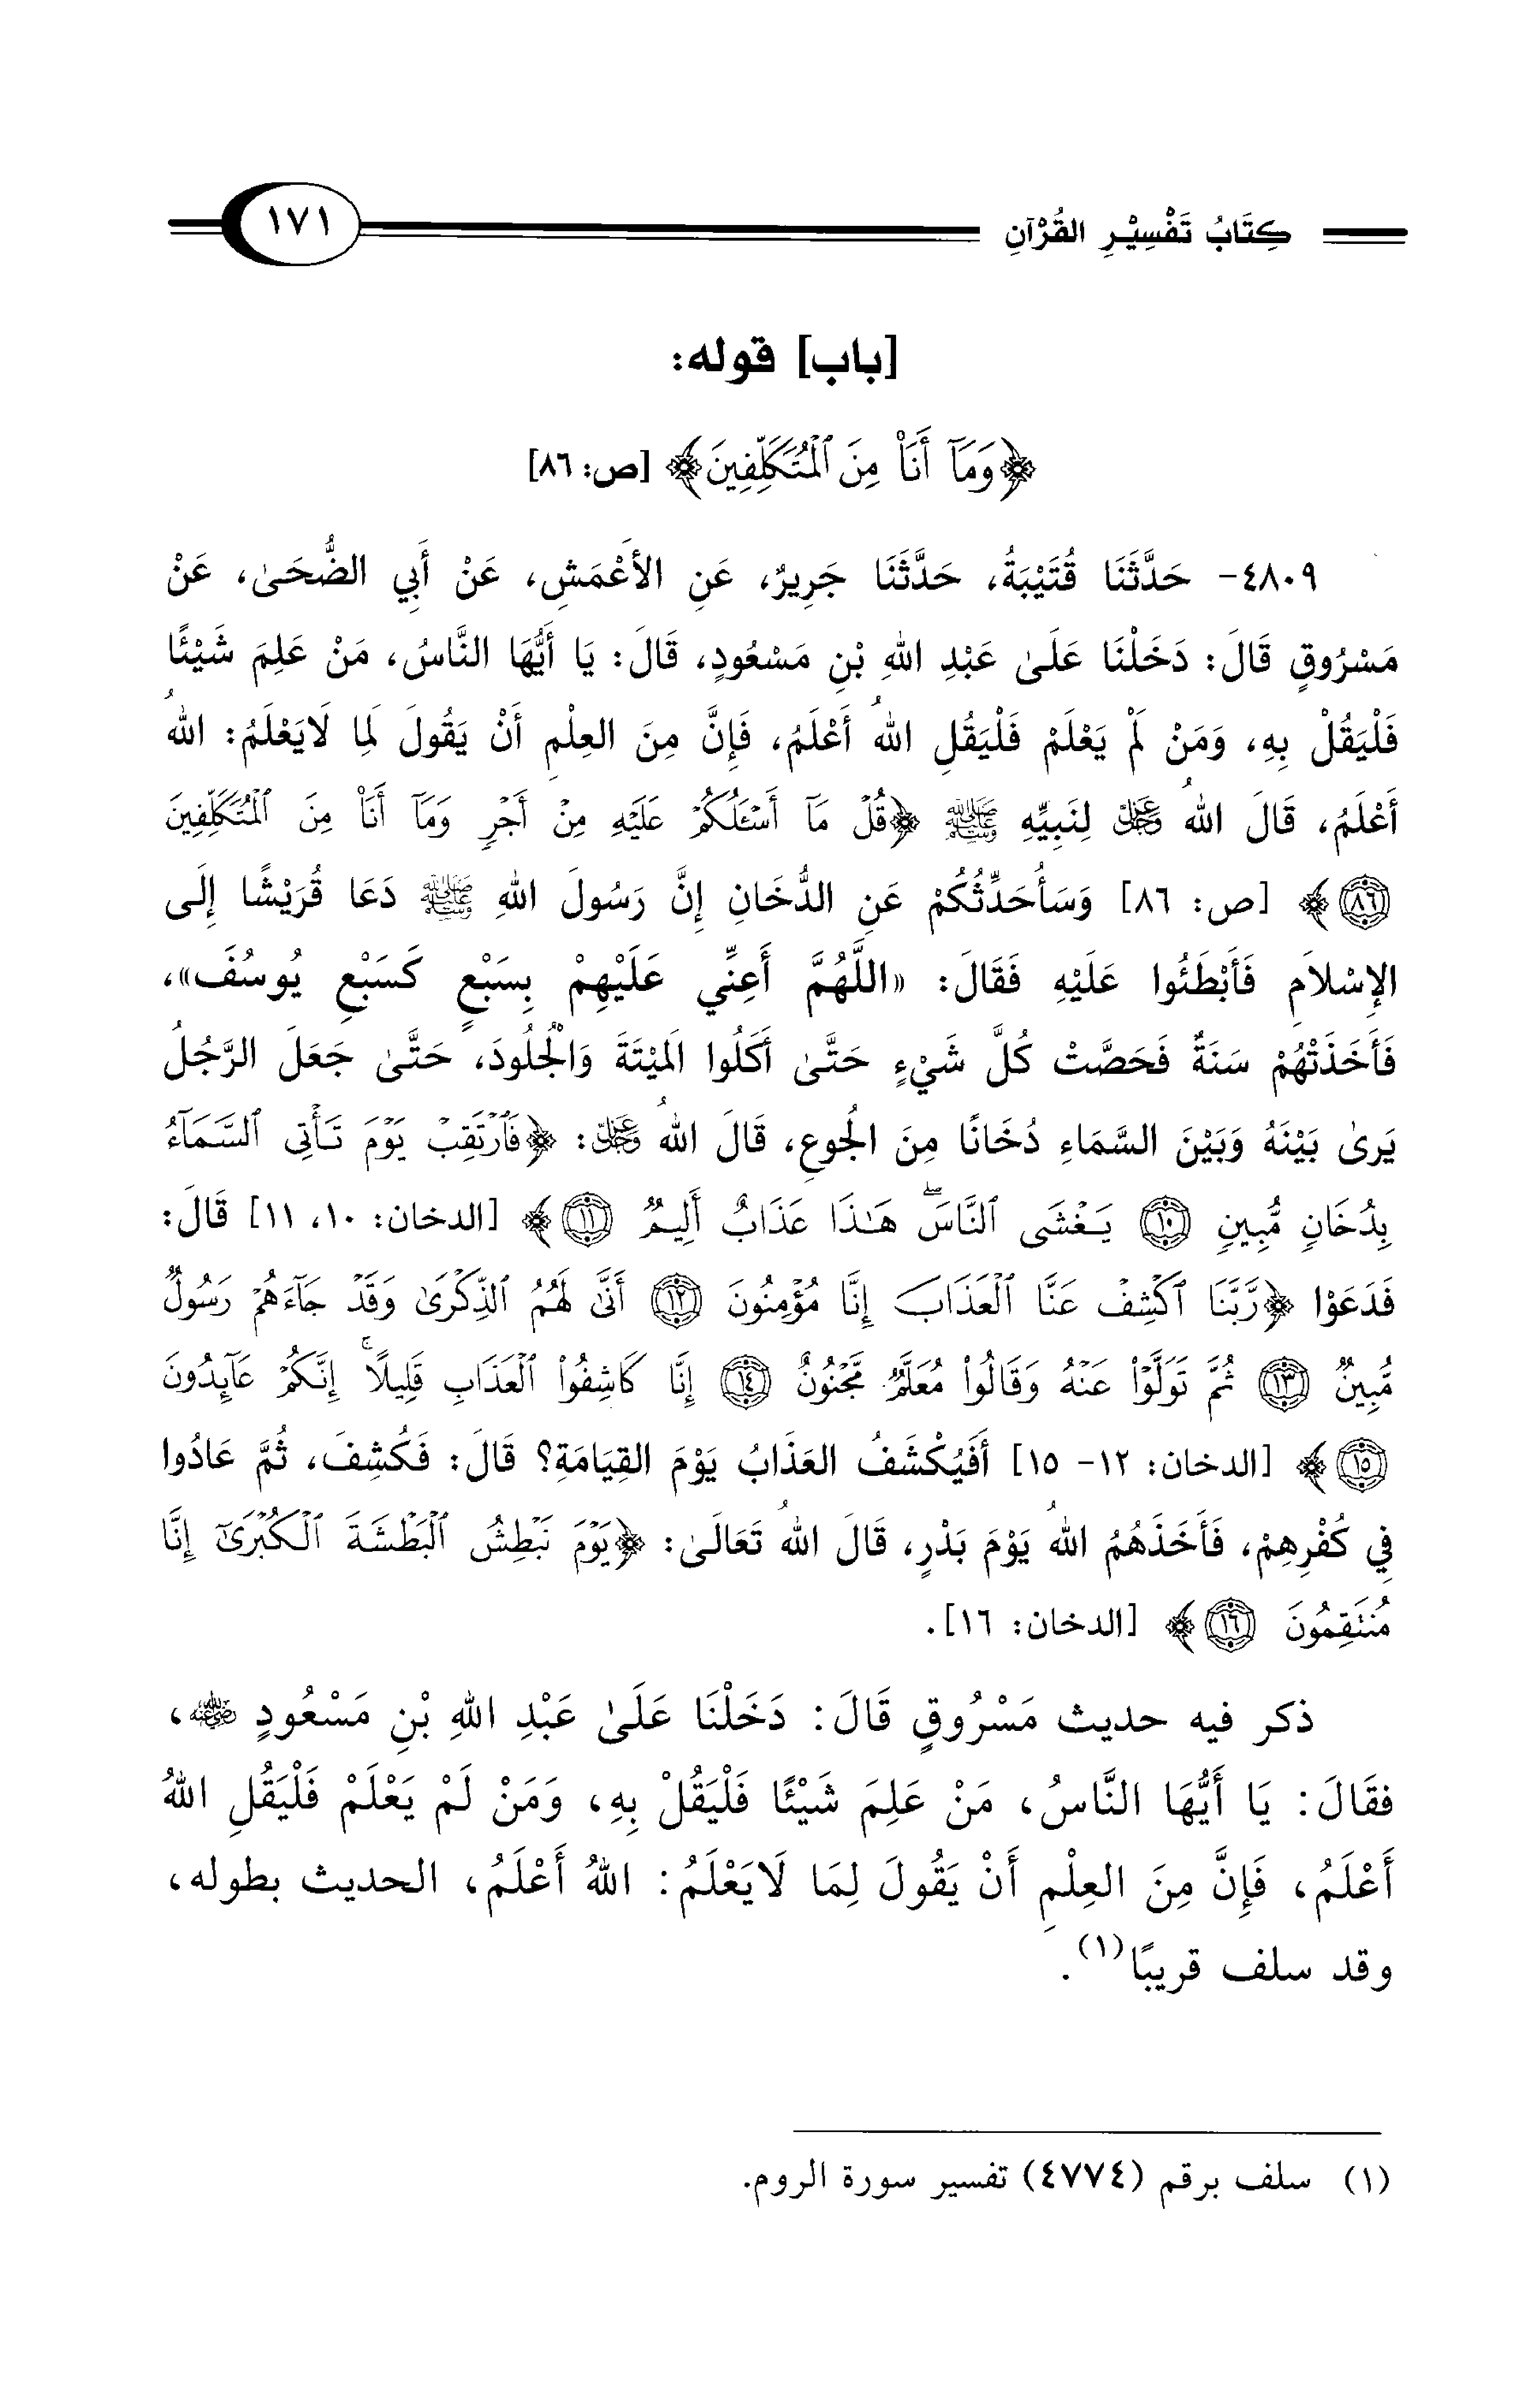 كِتَابُ تَفْسِيْرِ القُرْآنِ ١٧١
[باب] قوله:
﴿وَمَآ أَنَا۠ مِنَ ٱلْمُتَكَلِّفِينَ﴾ [ص: ٨٦]
٤٨٠٩- حَدَّثَنَا قُتَيْبَةُ، حَدَّثَنَا جَرِيرٌ، عَنِ الأَعْمَشِ، عَنْ أَبِي الضُّحَىٰ، عَنْ
مَسْرُوقٍ قَالَ: دَخَلْنَا عَلَىٰ عَبْدِ اللهِ بْنِ مَسْعُودٍ، قَالَ: يَا أَيُّهَا النَّاسُ، مَنْ عَلِمَ شَيْئًا
فَلْيَقُلْ بِهِ، وَمَنْ لَمْ يَعْلَمْ فَلْيَقُلِ اللهُ أَعْلَمُ، فَإِنَّ مِنَ العِلْمِ أَنْ يَقُولَ لِمَا لَايَعْلَمُ: اللهُ
أَعْلَمُ، قَالَ اللهُ عَزَّ وَجَلَّ لِنَبِيِّهِ ﷺ ﴿قُلْ مَآ أَسْـَٔلُكُمْ عَلَيْهِ مِنْ أَجْرٍ وَمَآ أَنَا۠ مِنَ ٱلْمُتَكَلِّفِينَ
٨٦﴾ [ص: ٨٦] وَسَأُحَدِّثُكُمْ عَنِ الدُّخَانِ إِنَّ رَسُولَ اللهِ ﷺ دَعَا قُرَيْشًا إِلَى
الإِسْلَامِ فَأَبْطَئُوا عَلَيْهِ فَقَالَ: «اللَّهُمَّ أَعِنِّي عَلَيْهِمْ بِسَبْعٍ كَسَبْعِ يُوسُفَ»،
فَأَخَذَتْهُمْ سَنَةٌ فَحَصَّتْ كُلَّ شَيْءٍ حَتَّىٰ أَكَلُوا المَيْتَةَ وَالْجُلُودَ، حَتَّىٰ جَعَلَ الرَّجُلُ
يَرىٰ بَيْنَهُ وَبَيْنَ السَّمَاءِ دُخَانًا مِنَ الْجُوعِ، قَالَ اللهُ عَزَّ وَجَلَّ: ﴿فَٱرْتَقِبْ يَوْمَ تَأْتِى ٱلسَّمَآءُ
بِدُخَانٍ مُّبِينٍ ١٠ يَغْشَى ٱلنَّاسَۖ هَـٰذَا عَذَابٌ أَلِيمٌ ١١﴾ [الدخان: ١٠، ١١] قَالَ:
فَدَعَوْا ﴿رَّبَّنَا ٱكْشِفْ عَنَّا ٱلْعَذَابَ إِنَّا مُؤْمِنُونَ ١٢ أَنَّىٰ لَهُمُ ٱلذِّكْرَىٰ وَقَدْ جَآءَهُمْ رَسُولٌ
مُّبِينٌ ١٣ ثُمَّ تَوَلَّوْا۟ عَنْهُ وَقَالُوا۟ مُعَلَّمٌ مَّجْنُونٌ ١٤ إِنَّا كَاشِفُوا۟ ٱلْعَذَابِ قَلِيلًاۚ إِنَّكُمْ عَآئِدُونَ
١٥﴾ [الدخان: ١٢- ١٥] أَفَيُكْشَفُ العَذَابُ يَوْمَ القِيَامَةِ؟ قَالَ: فَكُشِفَ، ثُمَّ عَادُوا
فِي كُفْرِهِمْ، فَأَخَذَهُمُ اللهُ يَوْمَ بَدْرٍ، قَالَ اللهُ تَعَالَىٰ: ﴿يَوْمَ نَبْطِشُ ٱلْبَطْشَةَ ٱلْكُبْرَىٰٓ إِنَّا
مُنتَقِمُونَ ١٦﴾ [الدخان: ١٦].
ذكر فيه حديث مَسْرُوقٍ قَالَ: دَخَلْنَا عَلَىٰ عَبْدِ اللهِ بْنِ مَسْعُودٍ رضي الله عنه،
فقَالَ: يَا أَيُّهَا النَّاسُ، مَنْ عَلِمَ شَيْئًا فَلْيَقُلْ بِهِ، وَمَنْ لَمْ يَعْلَمْ فَلْيَقُلِ اللهُ
أَعْلَمُ، فَإِنَّ مِنَ العِلْمِ أَنْ يَقُولَ لِمَا لَايَعْلَمُ: اللهُ أَعْلَمُ، الحديث بطوله،
وقد سلف قريبًا(١).
(١) سلف برقم (٤٧٧٤) تفسير سورة الروم.